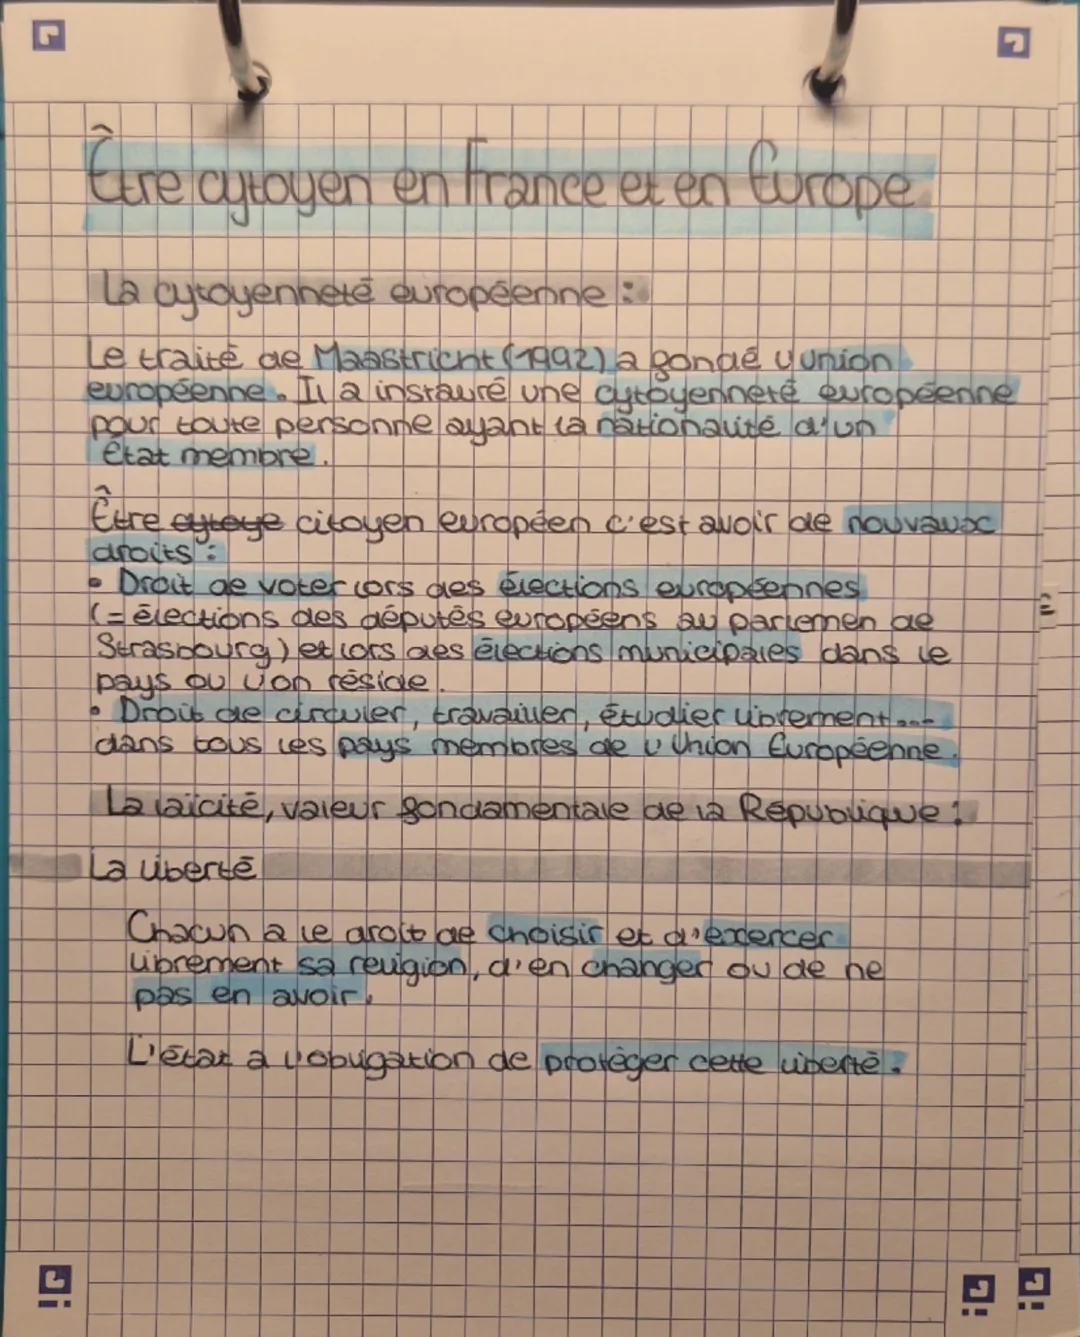 Être cytoyen en France et en Europe.
La cytoyenneté européenne :
Le traité de Maastricht (1992) a fondé l'union
européenne. Il a instauré une cytoyenneté européenne
pour toute personne ayant la nationalité d'un
État membre.
Être cytoye citoyen européen c'est avoir de nouvaux
droits :
• Droit de voter lors des élections européennes
(= élections des députés européens au parlemen de
Strasbourg) et lors des élections municipales dans le
pays ou l'on réside.
• Droit de circuler, travailler, étudier librement...
dans tous les pays membres de l'Union Européenne.
La laïcité, valeur fondamentale de la République :
La liberté
Chacun a le droit de choisir et d'exercer
librement sa religion, d'en changer ou de ne
pas en avoir.
L'état a l'obligation de protéger cette liberté.